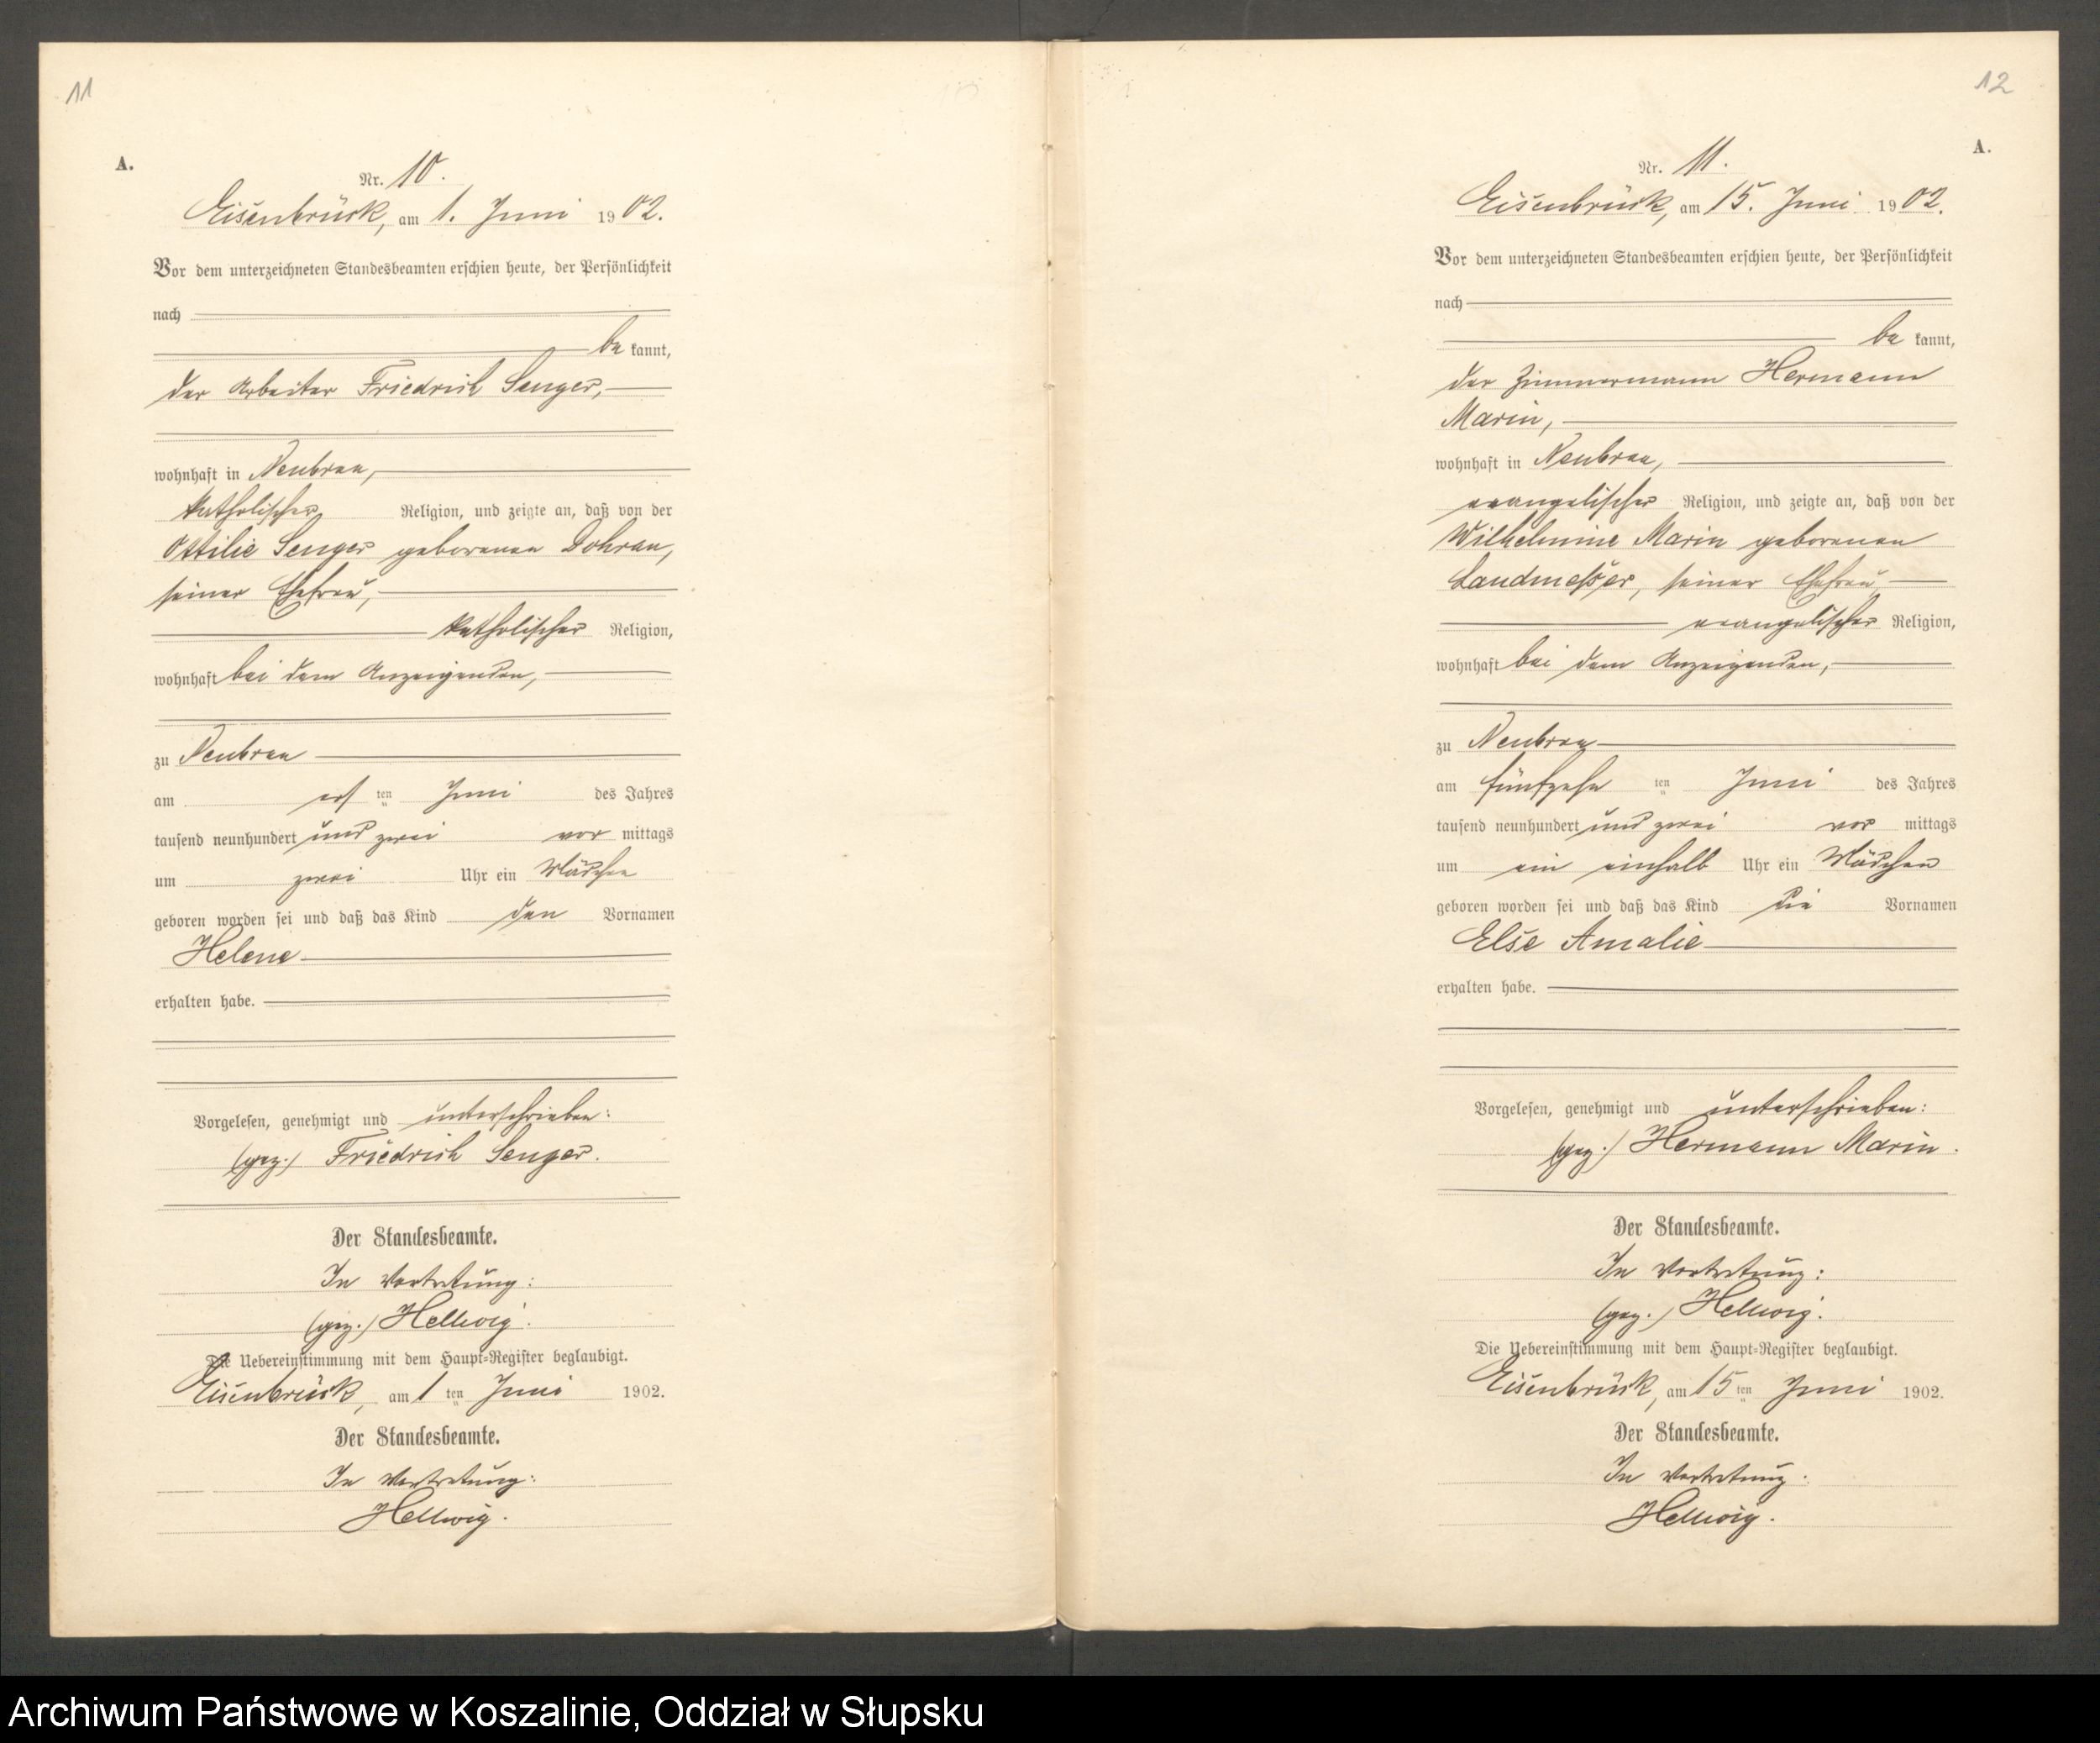 11
A.
Nr. 10.
Eisenbrück, am 1. Juni 1902.
Vor dem unterzeichneten Standesbeamten erschien heute, der Persönlichkeit
nach
be kannt,
der Arbeiter Friedrich Senger,
wohnhaft in Neubrau,
katholischer Religion, und zeigte an, daß von der
Ottilie Senger geborenen Dohrau,
seiner Ehefrau,
katholischer Religion,
wohnhaft bei dem Anzeigenden,
zu Neubrau
am ersten Juni des Jahres
tausend neunhundert und zwei vor mittags
um zwei Uhr ein Mädchen
geboren worden sei und daß das Kind den Vornamen
Helene
erhalten habe.
Vorgelesen, genehmigt und unterschrieben:
(gez.) Friedrich Senger.
Der Standesbeamte.
In Vertretung:
(gez.) Hellwig.
Die Uebereinstimmung mit dem Haupt-Register beglaubigt.
Eisenbrück, am 1 ten Juni 1902.
Der Standesbeamte.
In Vertretung:
Hellwig.
12
A.
Nr. 11.
Eisenbrück, am 15. Juni 1902.
Vor dem unterzeichneten Standesbeamten erschien heute, der Persönlichkeit
nach
be kannt,
der Zimmermann Hermann
Marin,
wohnhaft in Neubrau,
evangelischer Religion, und zeigte an, daß von der
Wilhelmine Marin geborenen
Landmesser, seiner Ehefrau,
evangelischer Religion,
wohnhaft bei dem Anzeigenden,
zu Neubrau
am fünfzehn ten Juni des Jahres
tausend neunhundert und zwei vor mittags
um ein einhalb Uhr ein Mädchen
geboren worden sei und daß das Kind die Vornamen
Else Amalie
erhalten habe.
Vorgelesen, genehmigt und unterschrieben:
(gez.) Hermann Marin.
Der Standesbeamte.
In Vertretung:
(gez.) Hellwig.
Die Uebereinstimmung mit dem Haupt-Register beglaubigt.
Eisenbrück, am 15 ten Juni 1902.
Der Standesbeamte.
In Vertretung.
Hellwig.
Archiwum Państwowe w Koszalinie, Oddział w Słupsku